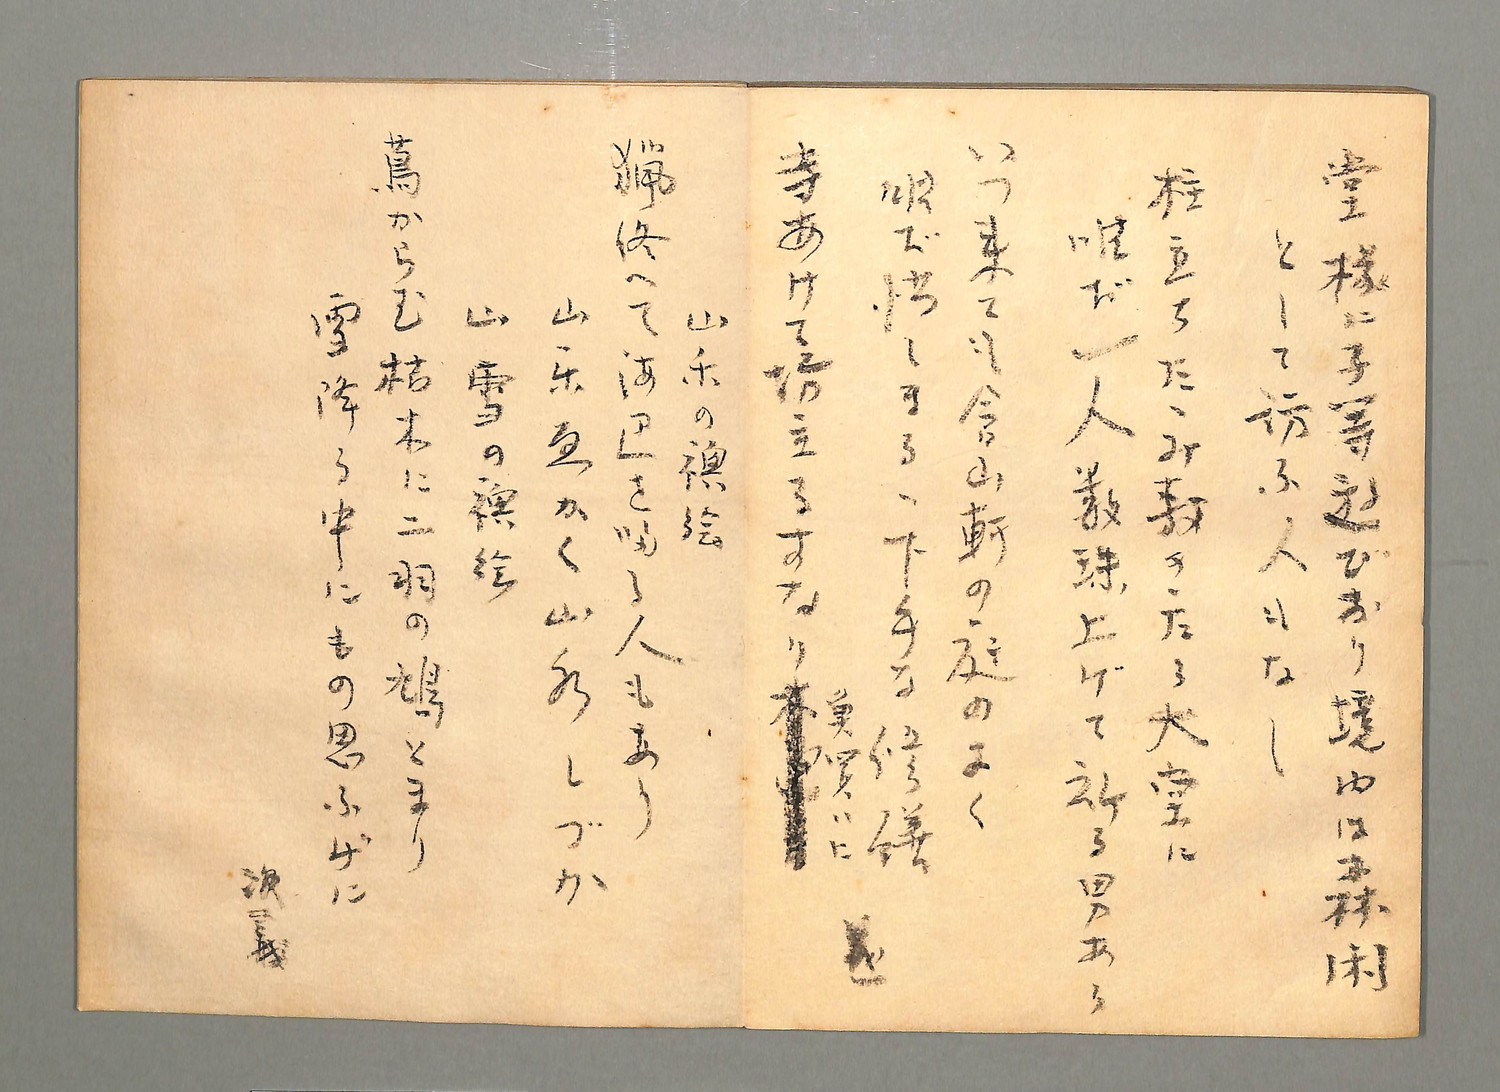 堂椽に子等遊びおり境内は森閑
として訪ふ人もなし
柱立ちたゝみ敷きたる大堂に
唯だ一人数珠上げて祈る男ある
いつ来ても含山軒の庭のよく
眼だ惜しまるゝ下手な修繕
寺あけて坊立るすなり
買いに
義
山楽の襖絵
猟終へて海辺を帰る人もあり
山楽画かく山水しづか
山雪の襖絵
蔦からむ枯木に二羽の鳩とまり
雪降る中にもの思ふげに
義